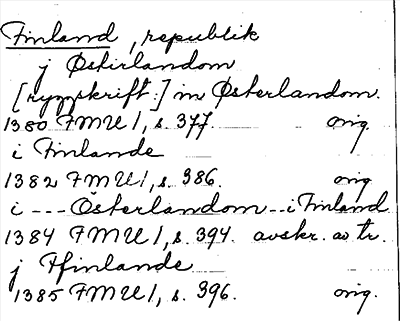 Finland, republik
j Østirlandom
[ryggskrift:] in Østerlandom.
1380 FMU 1, s. 377. orig.
i Finlande
1382 FMU 1, s. 386. orig
i --- Österlandom -- i Finland
1384 FMU 1, s. 394. avskr. av tr.
j Ffinlande
1385 FMU 1, s. 396. orig.